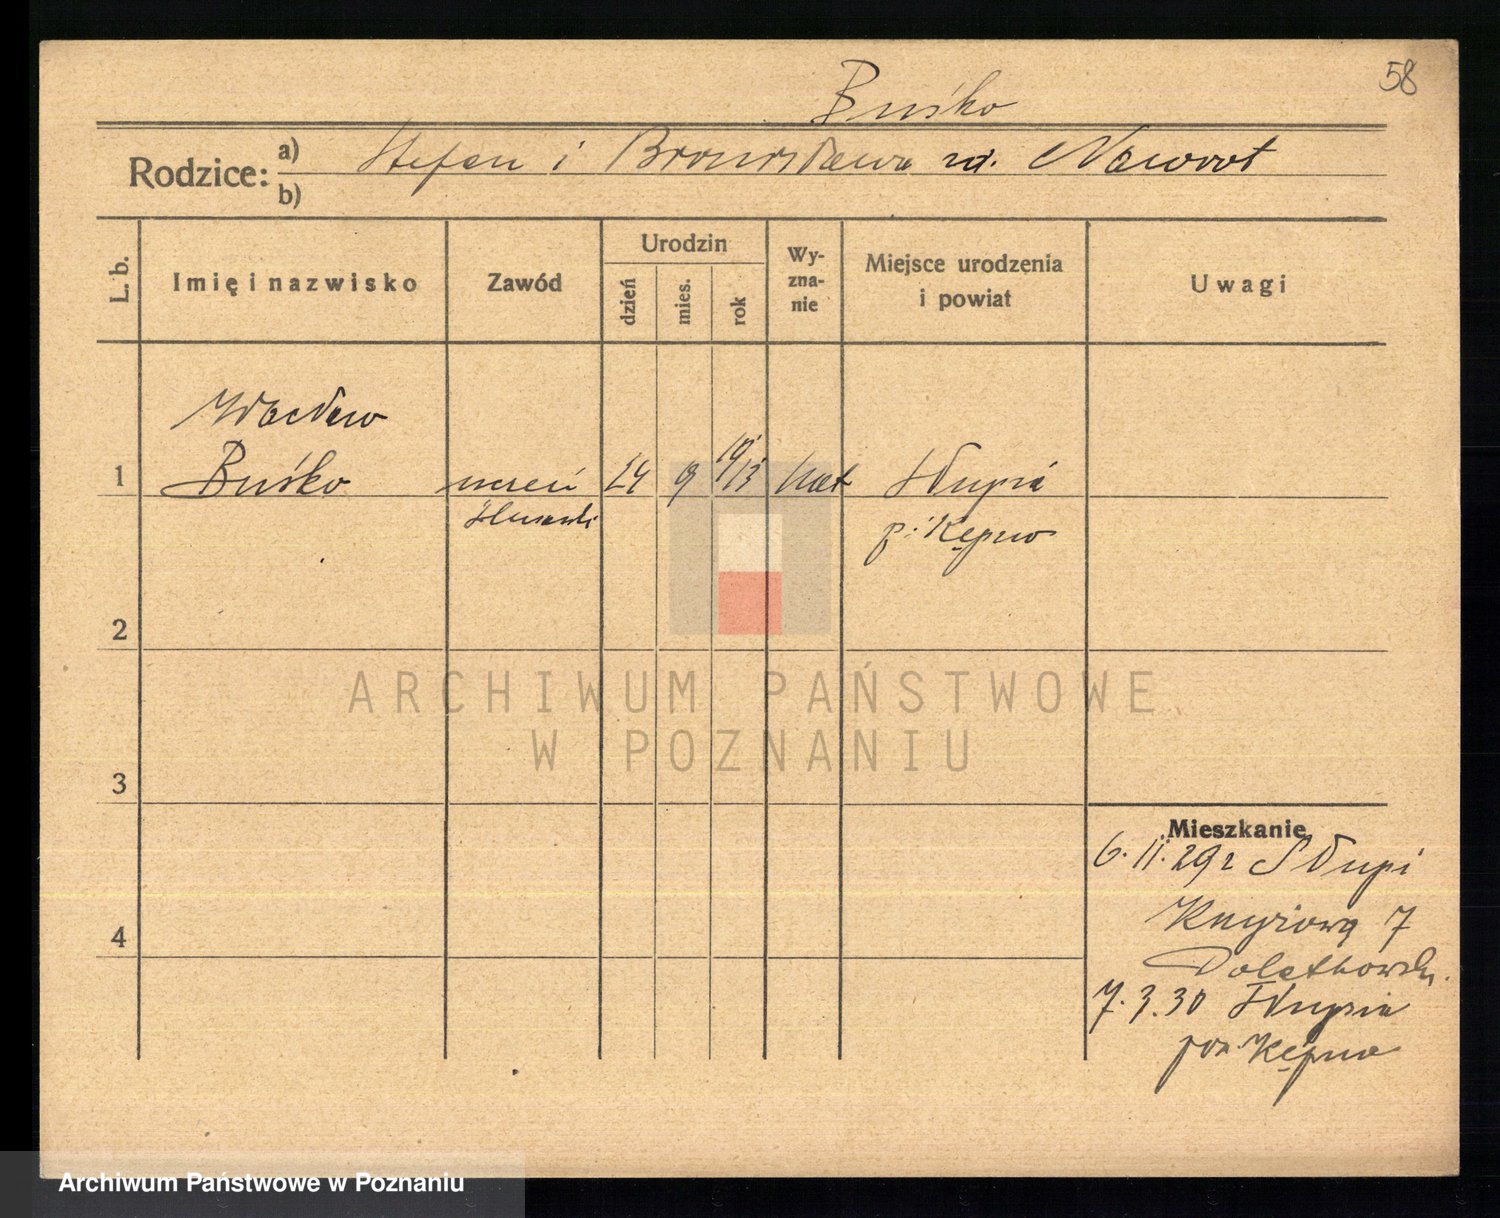 58
Buśko
Rodzice: a) Stefan i Bronisława zd. Nawrot
b)
L. b. Imię i nazwisko Zawód Urodzin dzień mies. rok Wy-zna-nie Miejsce urodzenia i powiat Uwagi
Wacław
1 Buśko uczeń 24 9 1913 kat Słupia
ślusarski p. Kępno
2
ARCHIWUM PAŃSTWOWE
W POZNANIU
3
Mieszkanie
6.11.29 z Słupi
7
4
7.3.30 Słupia
pow. Kępno
Archiwum Państwowe w Poznaniu